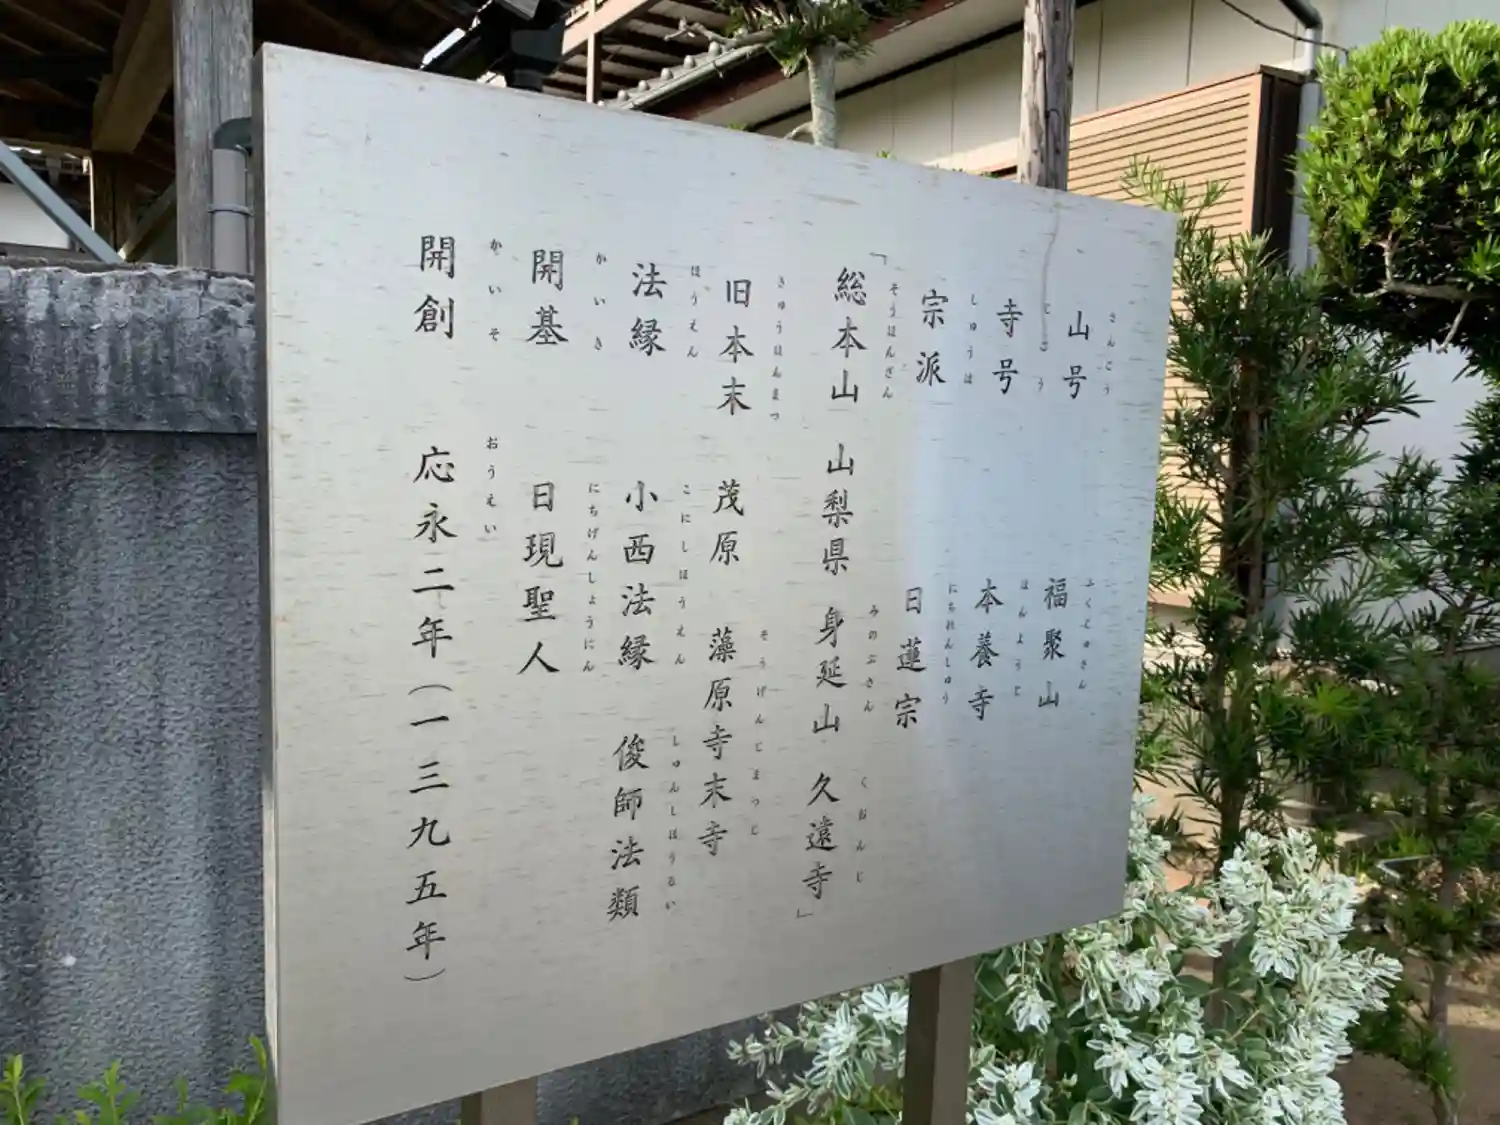 山号 福聚山
さんごう ふくじゅさん
寺号 本養寺
じごう ほんようじ
宗派 日蓮宗
しゅうは にちれんしゅう
「総本山 山梨県 身延山 久遠寺」
そうほんざん みのぶさん くおんじ
旧本末 茂原 藻原寺末寺
きゅうほんまつ そうげんじまつじ
法縁 小西法縁 俊師法類
ほうえん こにしほうえん しゅんしほうるい
開基 日現聖人
かいき にちげんしょうにん
開創 応永二年(一三九五年)
かいそ おうえい